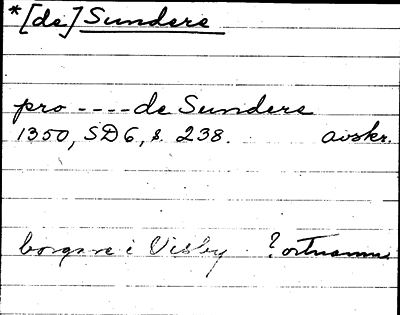 *[de] Sundere
pro ---- de Sundere
1350, SD6, s. 238. avskr.
borgare i Visby ? ortnamn